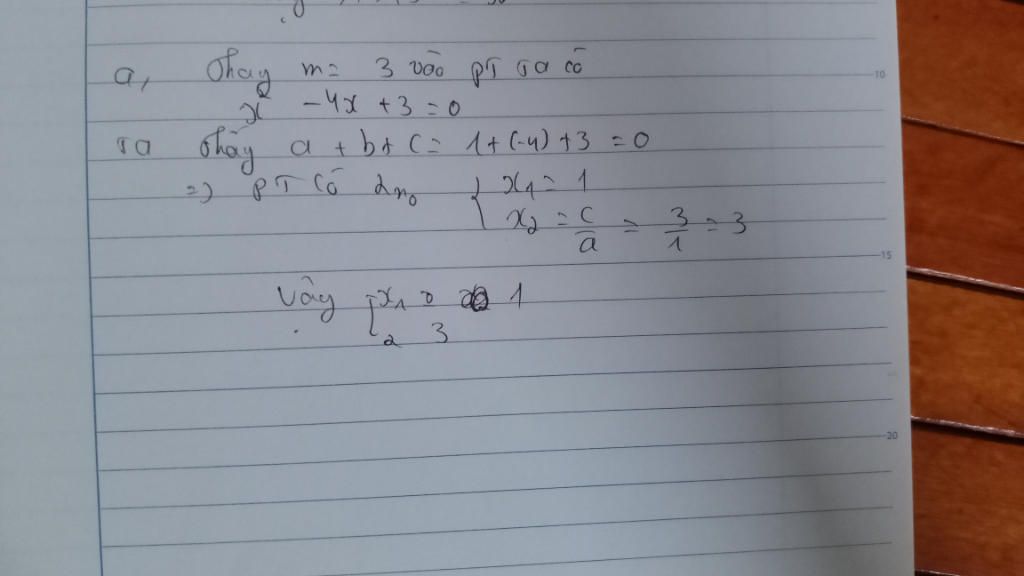 a, Thay m = 3 vào PT ta có
x² - 4x + 3 = 0
ta thấy a + b + c = 1 + (-4) + 3 = 0
=> PT có 2 no { x1 = 1
x2 = c/a = 3/1 = 3
Vậy [ x1 = 1
2 3
10
15
20